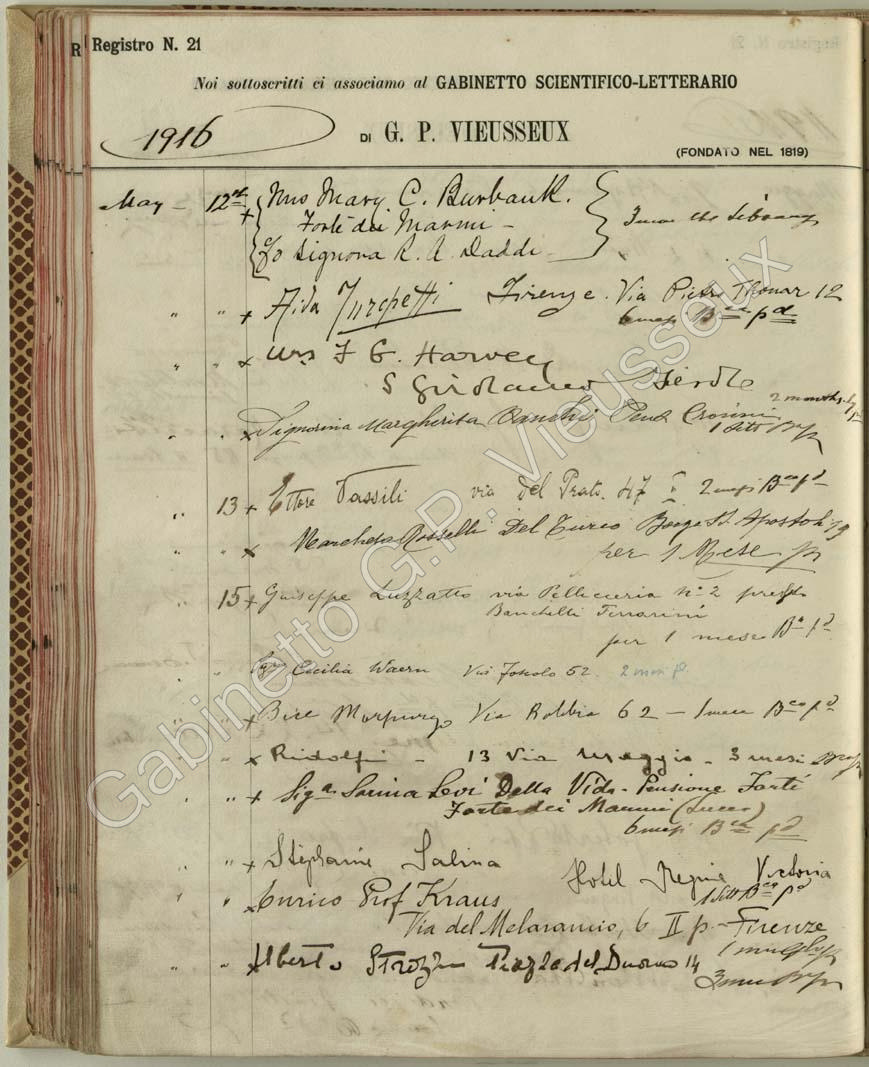 R Registro N. 21
Noi sottoscritti ci associamo al GABINETTO SCIENTIFICO-LETTERARIO
1916
DI G. P. VIEUSSEUX
(FONDATO NEL 1819)
May - 12 Mary C. Burbank.
Forte dei Marmi - 3 mos
c/o Signora R. A. Daddi
" " x Aida Firenze. Via Pietro Thouar 12
6 mesi pd
" " x Mrs F G. Harvey
S Girolamo Fiesole
2 months
" " x Signorina Margherita Pens Crocini
" 13 x Ettore Tassili via del Prato. 47 2 mesi pd
" " x Marchesa Rosselli Del Turco Borgo SS. Apostoli 19
per 1 Mese
" 15 x Giuseppe Luzzatto via Pelliceria No 2 presso
per 1 mese pd
" " Cecilia Waern Via Foscolo 52. 2 mesi p.
" " x Bice Morpurgo Via Robbia 62 - 1 mese pd
" " x Ridolfi - 13 Via Maggio - 3 mesi
" " x Siga. Sarina Levi Della Vida - Pensione Forti
Forte dei Marmi (Lucca)
6 mesi pd
" " x Stéphanie Salina
Hotel Regina Victoria
" " x Enrico Prof Kraus
Via del Melarancio, 6 II p. - Firenze
" " x Alberto Strozzi Piazza del Duomo 14
3 mesi
Gabinetto G.P. Vieusseux